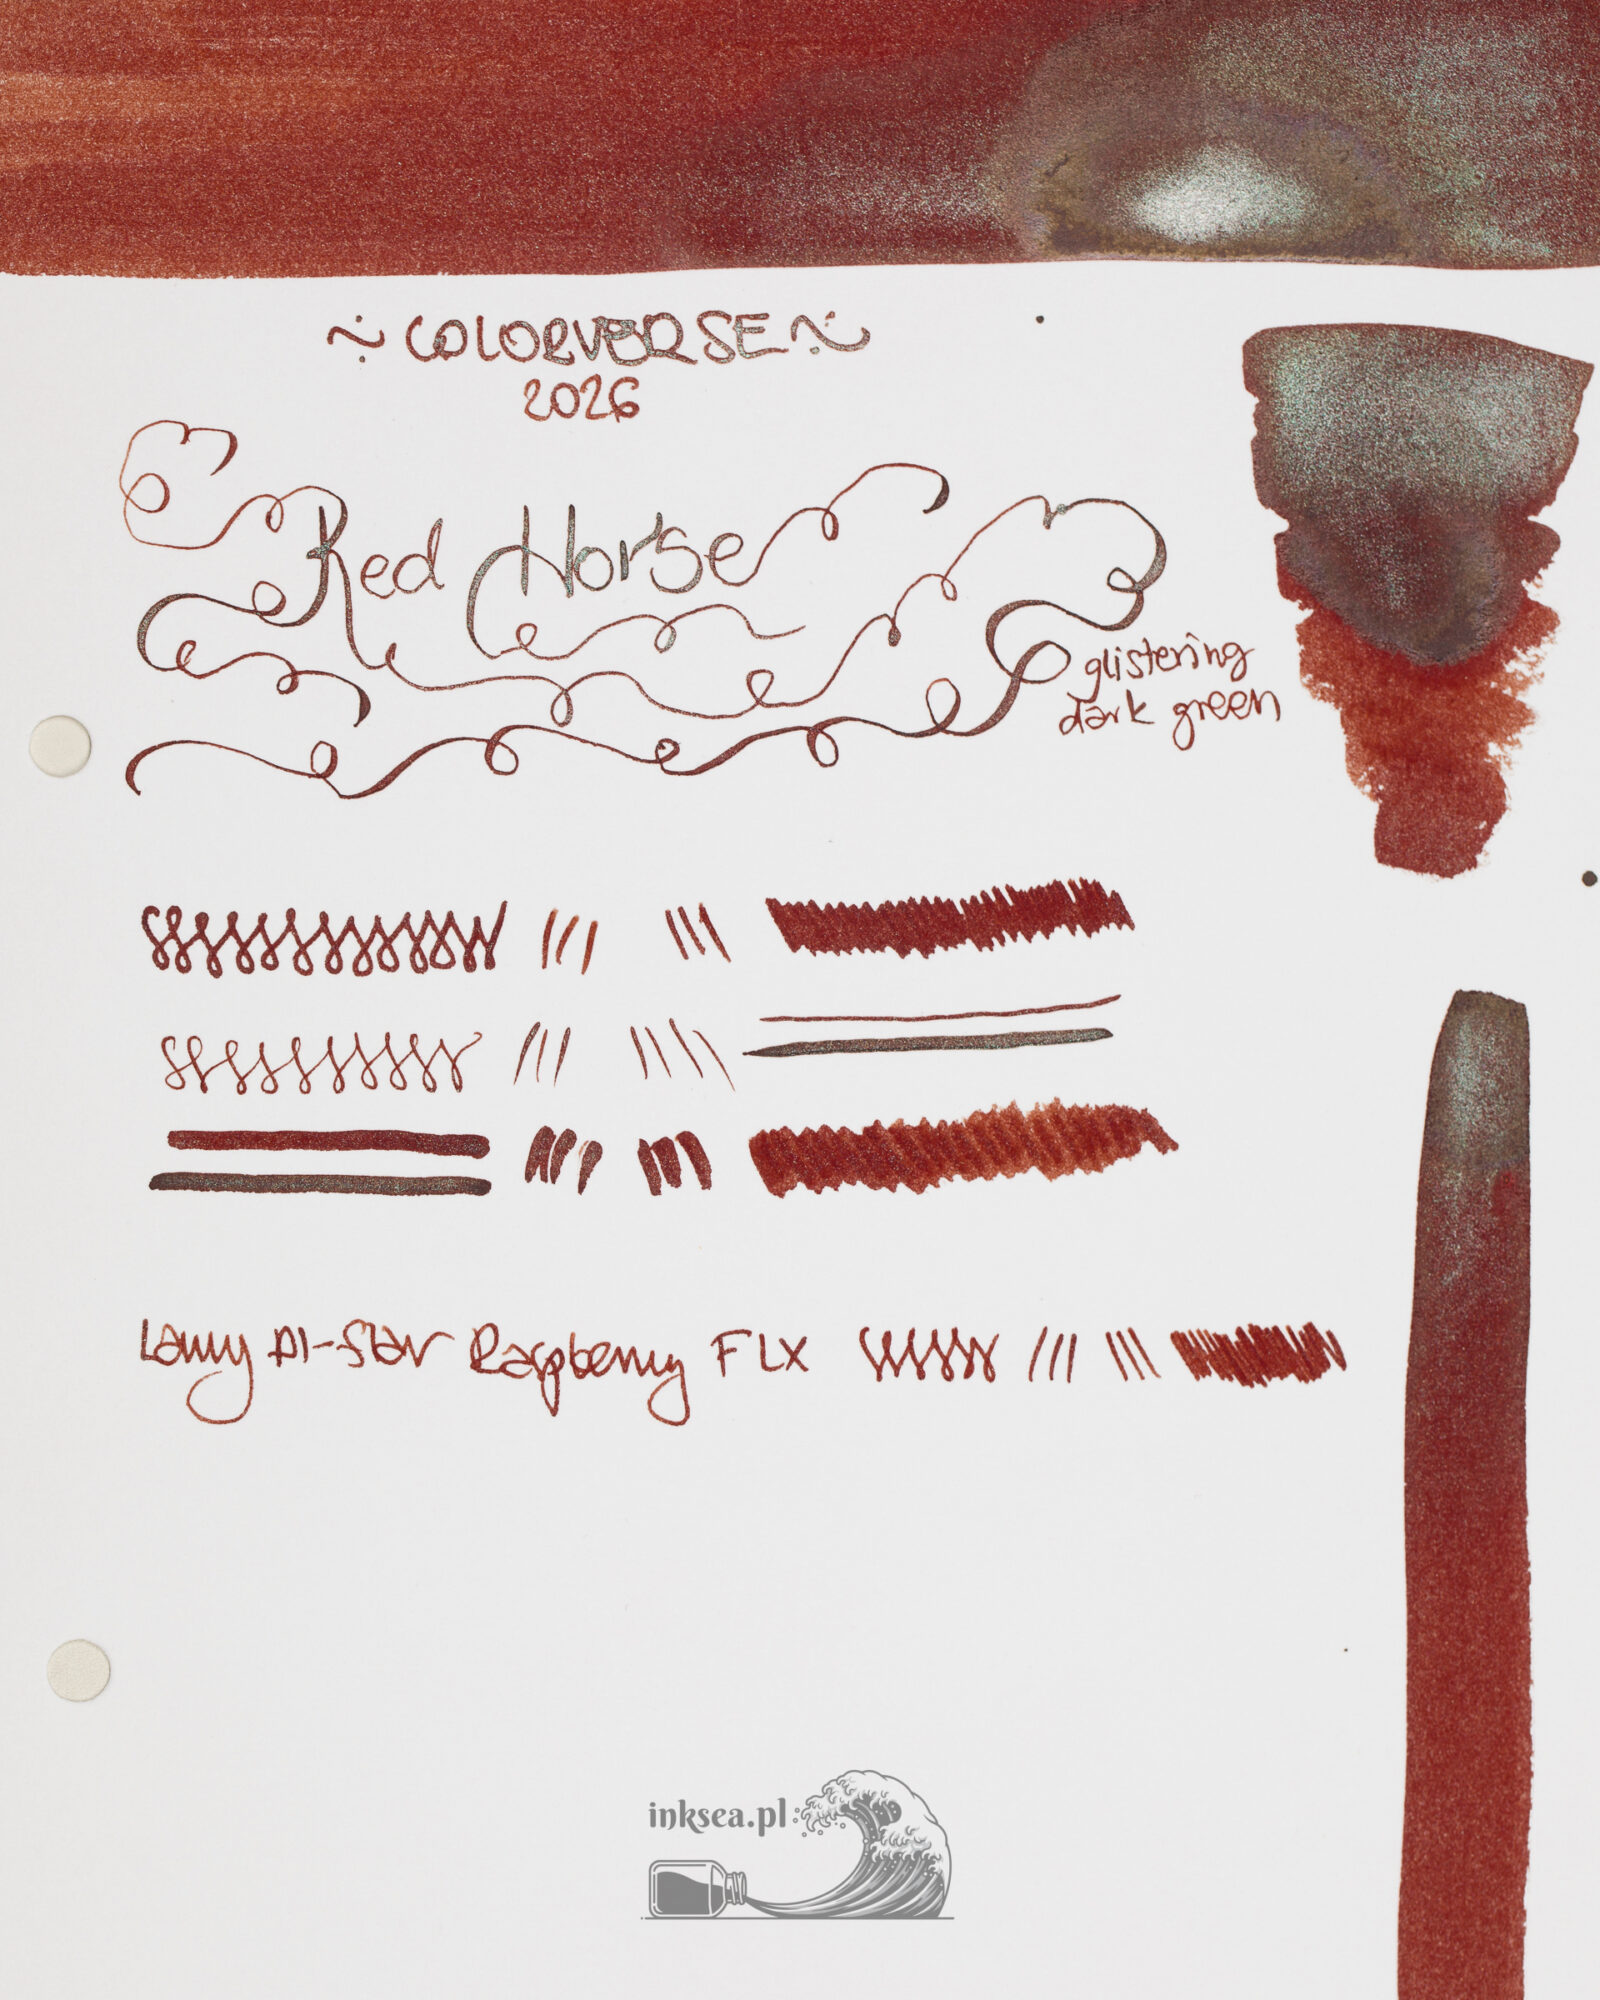 ~ COLORVERSE ~
2026
Red Horse
glistering
dark green
Lamy Al-Star Raspberry FLX
inksea.pl